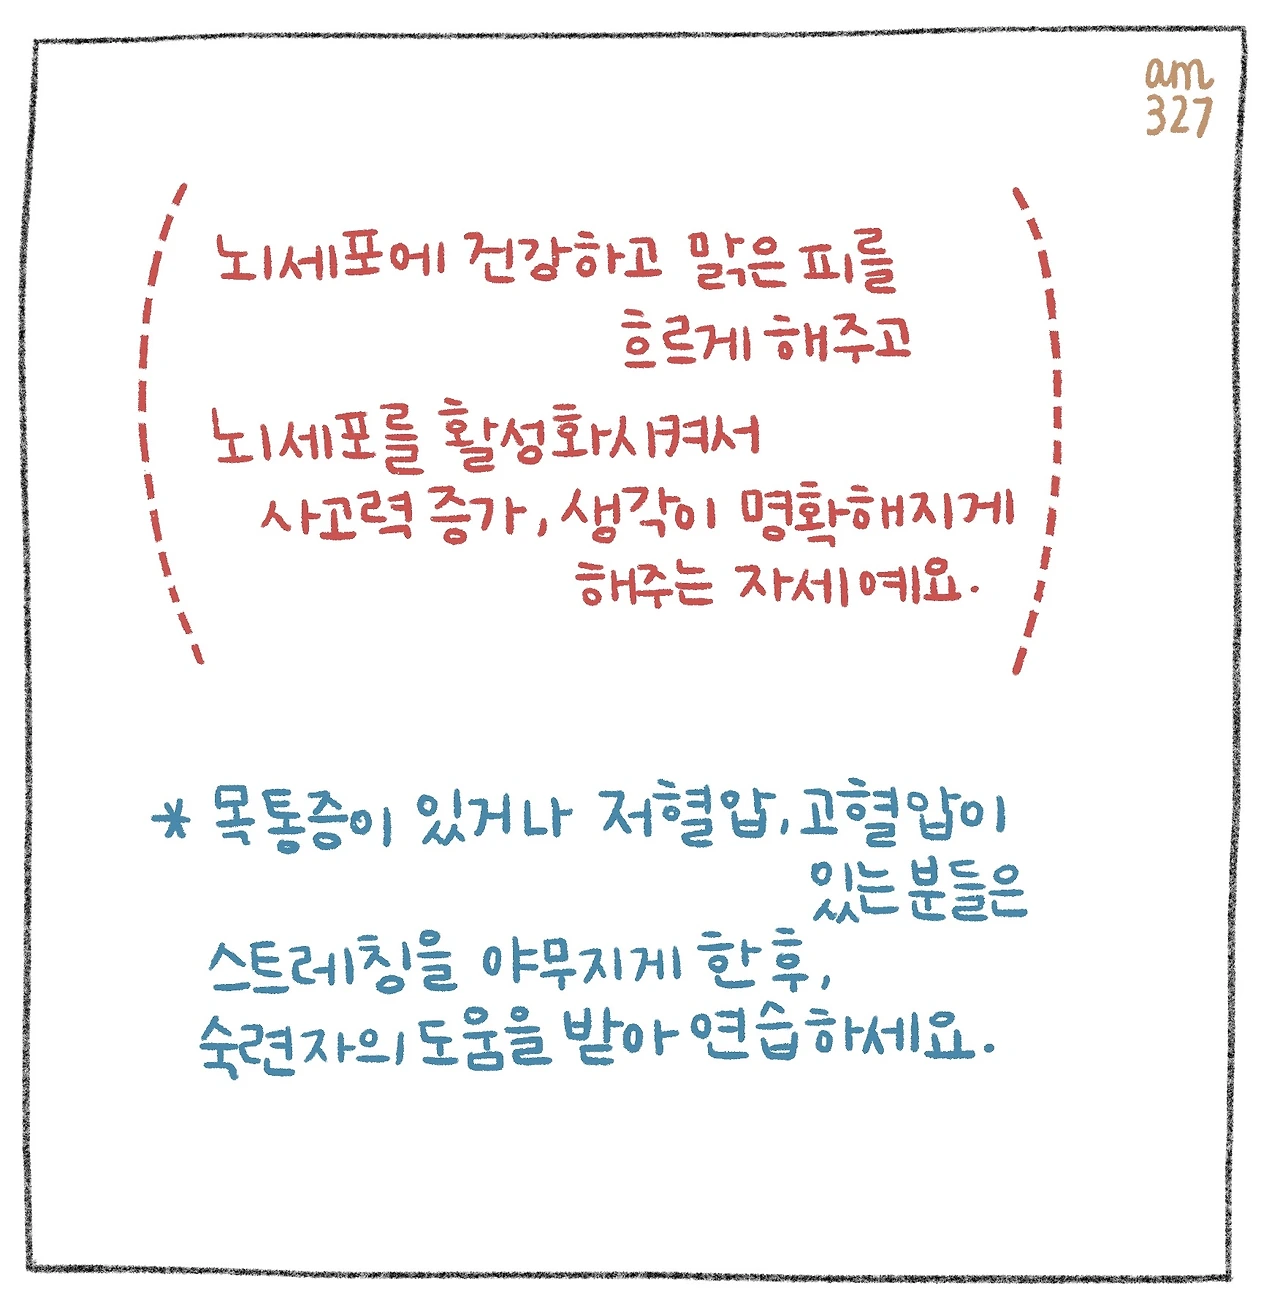 am
327
뇌세포에 건강하고 맑은 피를
흐르게 해주고
뇌세포를 활성화시켜서
사고력 증가, 생각이 명확해지게
해주는 자세예요.
* 목통증이 있거나 저혈압, 고혈압이
있는 분들은
스트레칭을 야무지게 한 후,
숙련자의 도움을 받아 연습하세요.